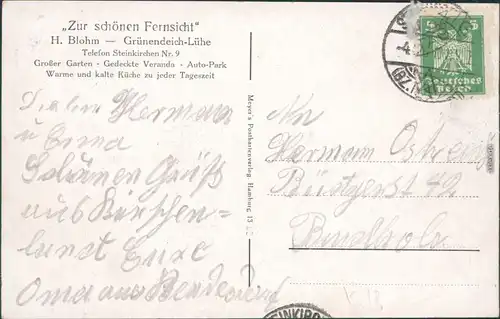 „Zur schönen Fernsicht"
H. Blohm — Grünendeich-Lühe
Telefon Steinkirchen Nr. 9
Großer Garten · Gedeckte Veranda · Auto-Park
Warme und kalte Küche zu jeder Tageszeit
Lieber Hermann
u Erna
Schönen Gruß
aus Kirschen=
land Eure
Oma aus
Meyer's Postkartenverlag, Hamburg 13
An
Hermann
42
5 5
Deutsches
Reich